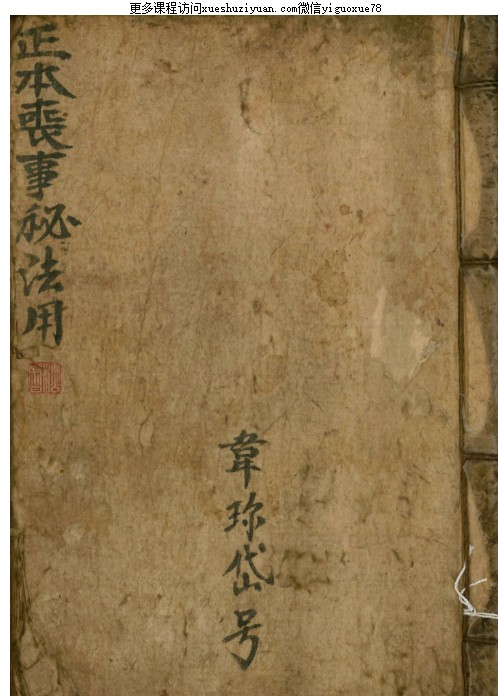 更多课程访问xueshuziyuan.com微信yiguoxue78
正本丧事秘法用
韋珎岱号